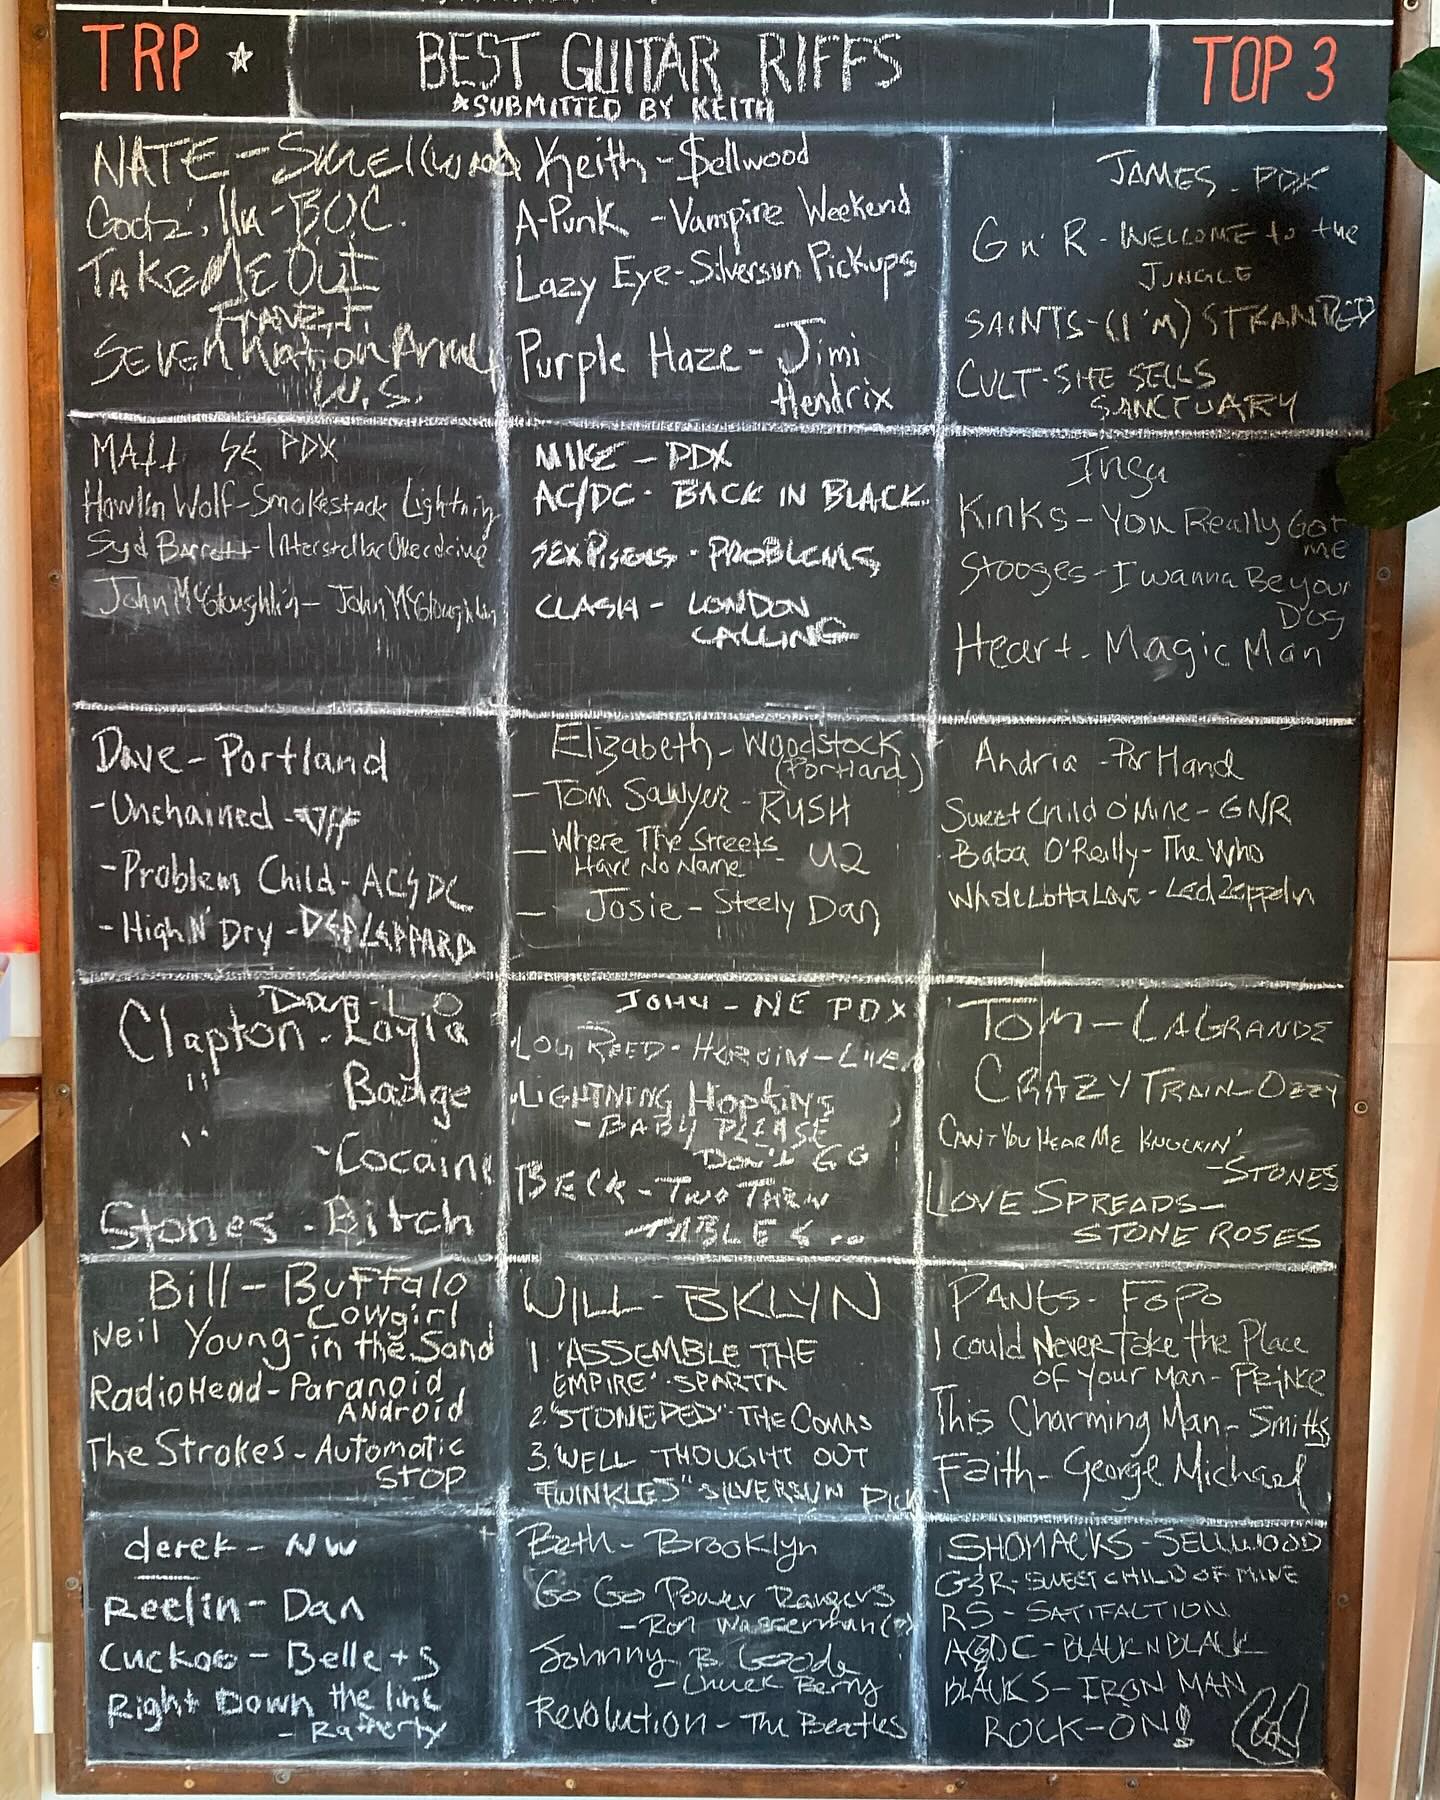 TRP ☆
BEST GUITAR RIFFS
*SUBMITTED BY KEITH
TOP 3
NATE - Smellwood
Godz'lla - B.O.C.
TAKE ME OUT
FRANZ F.
SEVEN Nation Army
W.S.
Keith - $ellwood
A-Punk - Vampire Weekend
Lazy Eye - Silversun Pickups
Purple Haze - Jimi
Hendrix
JAMES - PDX
G n' R - WELCOME to the
JUNGLE
SAINTS - (I'M) STRANDED
CULT - SHE SELLS
SANCTUARY
MAtt SE PDX
Howlin Wolf - Smokestack Lightnin
Syd Barrett - Interstellar Overdrive
John McGloughlin - John McGloughlin
MIKE - PDX
AC/DC - BACK IN BLACK
SEX PISTOLS - PROBLEMS
CLASH - LONDON
CALLING
Inga
Kinks - You Really Got
me
Stooges - I wanna Be your
Dog
Heart - Magic Man
Dave - Portland
- Unchained - VH
- Problem Child - AC/DC
- High N' Dry - DEF LEPPARD
Elizabeth - Woodstock
(Portland)
- Tom Sawyer - RUSH
- Where The Streets
Have No Name - U2
- Josie - Steely Dan
Andria - Portland
Sweet Child O' Mine - GNR
Baba O'Reilly - The Who
Whole Lotta Love - Led Zeppelin
Dave - L.O
Clapton - Layla
" Badge
" - Cocaine
Stones - Bitch
JOHN - NE PDX
LOU REED - HEROIN - LIVE
LIGHTNING Hopkins
- BABY PLEASE
DON'T GO
BECK - TWO THEN
TABLES ...
Tom - LAGRANDE
CRAZY TRAIN - OZZY
CAN'T YOU HEAR ME KNOCKIN'
- STONES
LOVE SPREADS -
STONE ROSES
Bill - Buffalo
Cowgirl
Neil Young - in the Sand
RadioHead - Paranoid
Android
The Strokes - Automatic
STOP
WILL - BKLYN
1. "ASSEMBLE THE
EMPIRE" - SPARTA
2. "STONEDED" - THE COMAS
3. "WELL THOUGHT OUT
TWINKLES" SILVERSUN PICK
PANTS - FoPo
I could Never take the Place
of Your Man - PRINCE
This Charming Man - Smiths
Faith - George Michael
derek - NW
Reelin - Dan
Cuckoo - Belle + S
Right Down the line
- Rafferty
Beth - Brooklyn
Go Go Power Rangers
- Ron Wasserman (?)
Johnny B. Goode
- Chuck Berry
Revolution - The Beatles
SHOMACKS - SELLWOOD
G&R - SWEET CHILD OF MINE
RS - SATIFACTION
AC/DC - BLACK N BLACK
BLACKS - IRON MAN
ROCK-ON!